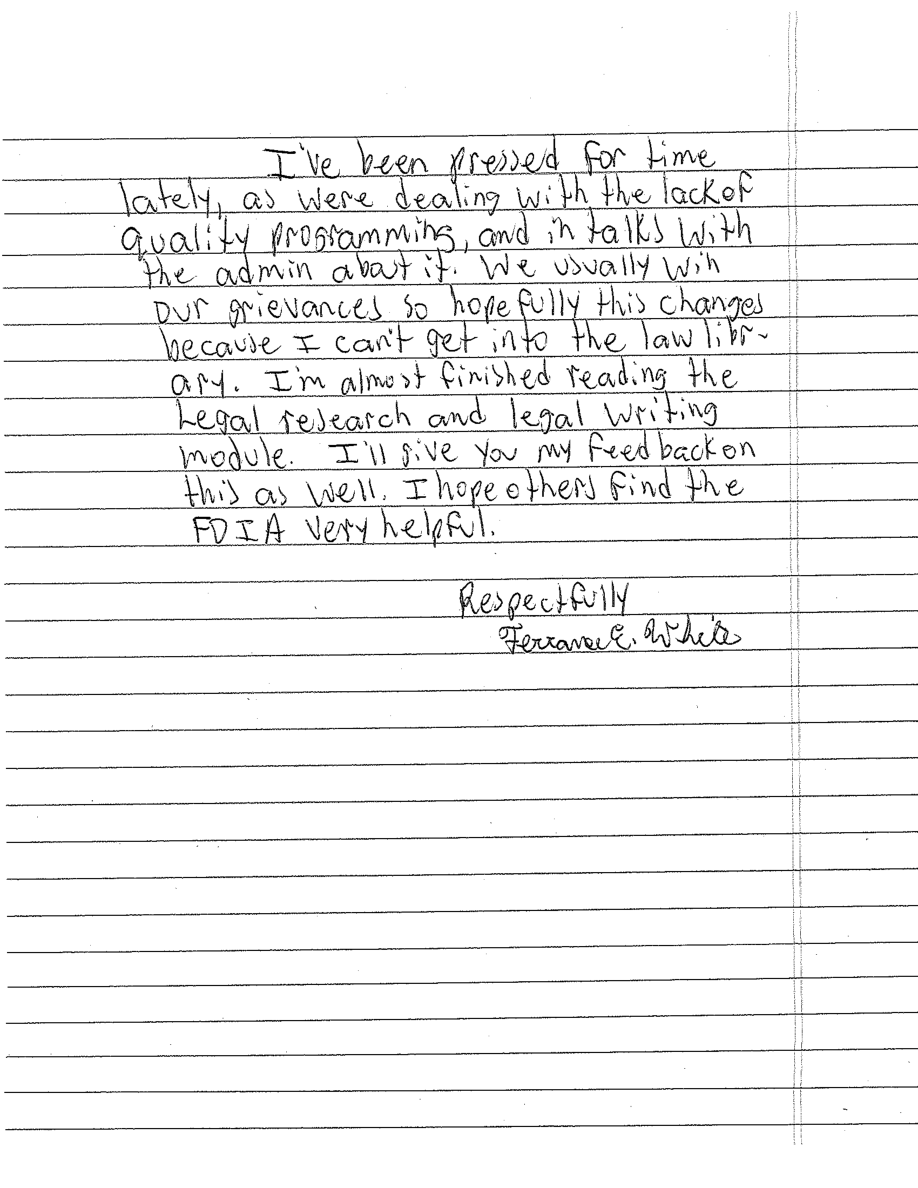 I've been pressed for time
lately, as were dealing with the lack of
quality programming, and in talks with
the admin about it. We usually win
our grievances so hopefully this changes
because I can't get into the law libr-
ary. I'm almost finished reading the
Legal research and legal writing
module. I'll give you my feedback on
this as well. I hope others find the
FDIA very helpful.
Respectfully
Terrance E. White